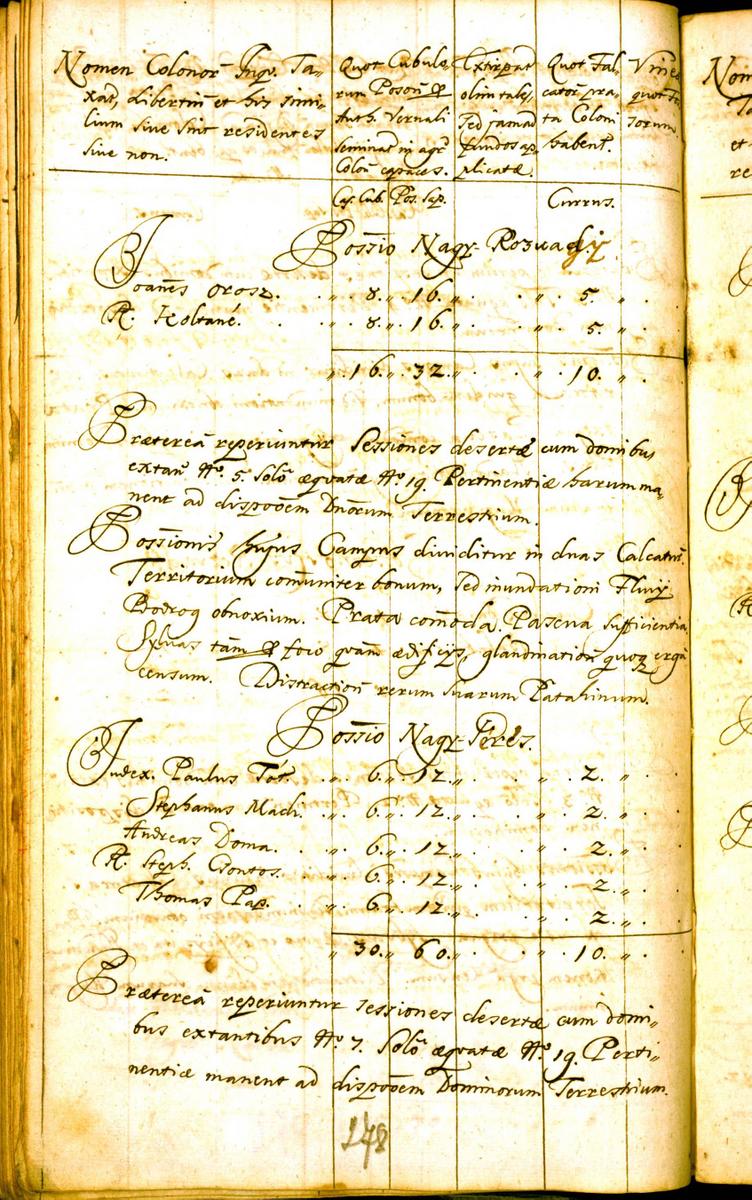 Nomen Colonor̄ Inqv. Ta-
xat, libertin̄ et his simi-
lium sive sint residentes
sive non.
Quot Cubulo-
rum Poson̄ &
Auth. Vernali
Seminat in agr̄
Colon̄ capaces.
Extirpat
olim tales,
sed jam ad
fundos ap-
plicatæ.
Quot Fal-
cator̄ pra-
ta Coloni
habent.
Vineæ
quot Fo
sorum
Cas. Cub. Pos. Sap. Currus.
Possio Nagy-Rozvadgy
J. Joañes Orosz. 8. 16. 5.
R. Koltané. 8. 16. 5.
16. 32. 10.
Prætereà reperiuntur Sessiones desertæ cum domibus
extan̄ No. 5. Solō æqvatæ No. 19. Pertinentiæ harum ma-
nent ad dispoōem Dnōrum Terrestrium.
Possionis hujus Campus dividitur in duas Calcatur̄.
Territorium com̄uniter bonum, sed inundationi Fluvÿ
Bodrog obnoxium. Prata com̄oda. Pascua sufficientia.
Sylvas tām & foco qvam ædificÿs, glandination̄ qvoq̄ ergà
censum. Distraction̄ rerum suarum Patakinum.
Possio Nagy-Géres.
Judex. Paulus Tót. 6. 12. 2.
Stephanus Madi. 6. 12. 2.
Andreas Doma. 6. 12. 2.
R. Steph. Csontos. 6. 12. 2.
Thomas Pap. 6. 12. 2.
30. 60. 10.
Prætereà reperiuntur sessiones desertæ cum domi-
bus extantibus No. 7. Solō æqvatæ No. 19. Perti-
nentiæ manent ad dispoōem Dominorum Terrestrium.
178